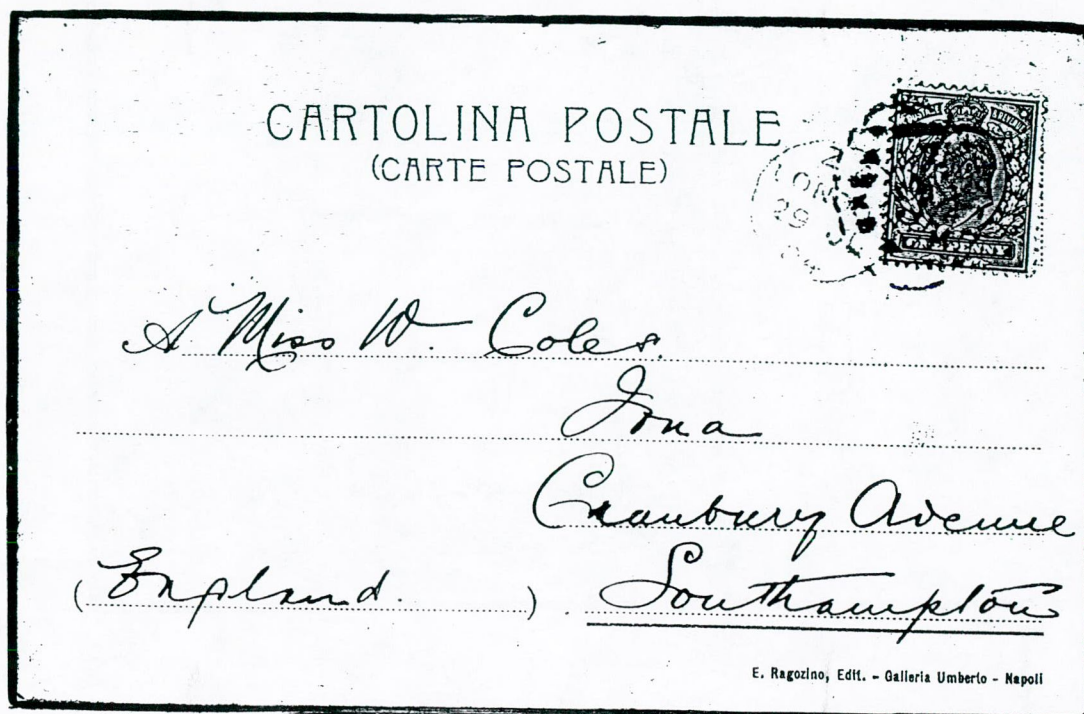 CARTOLINA POSTALE
(CARTE POSTALE)
LON
29
ONE PENNY
A Miss W. Coles.
Iona
Cranbury Avenue
(England.) Southampton
E. Ragozino, Edit. - Galleria Umberto - Napoli